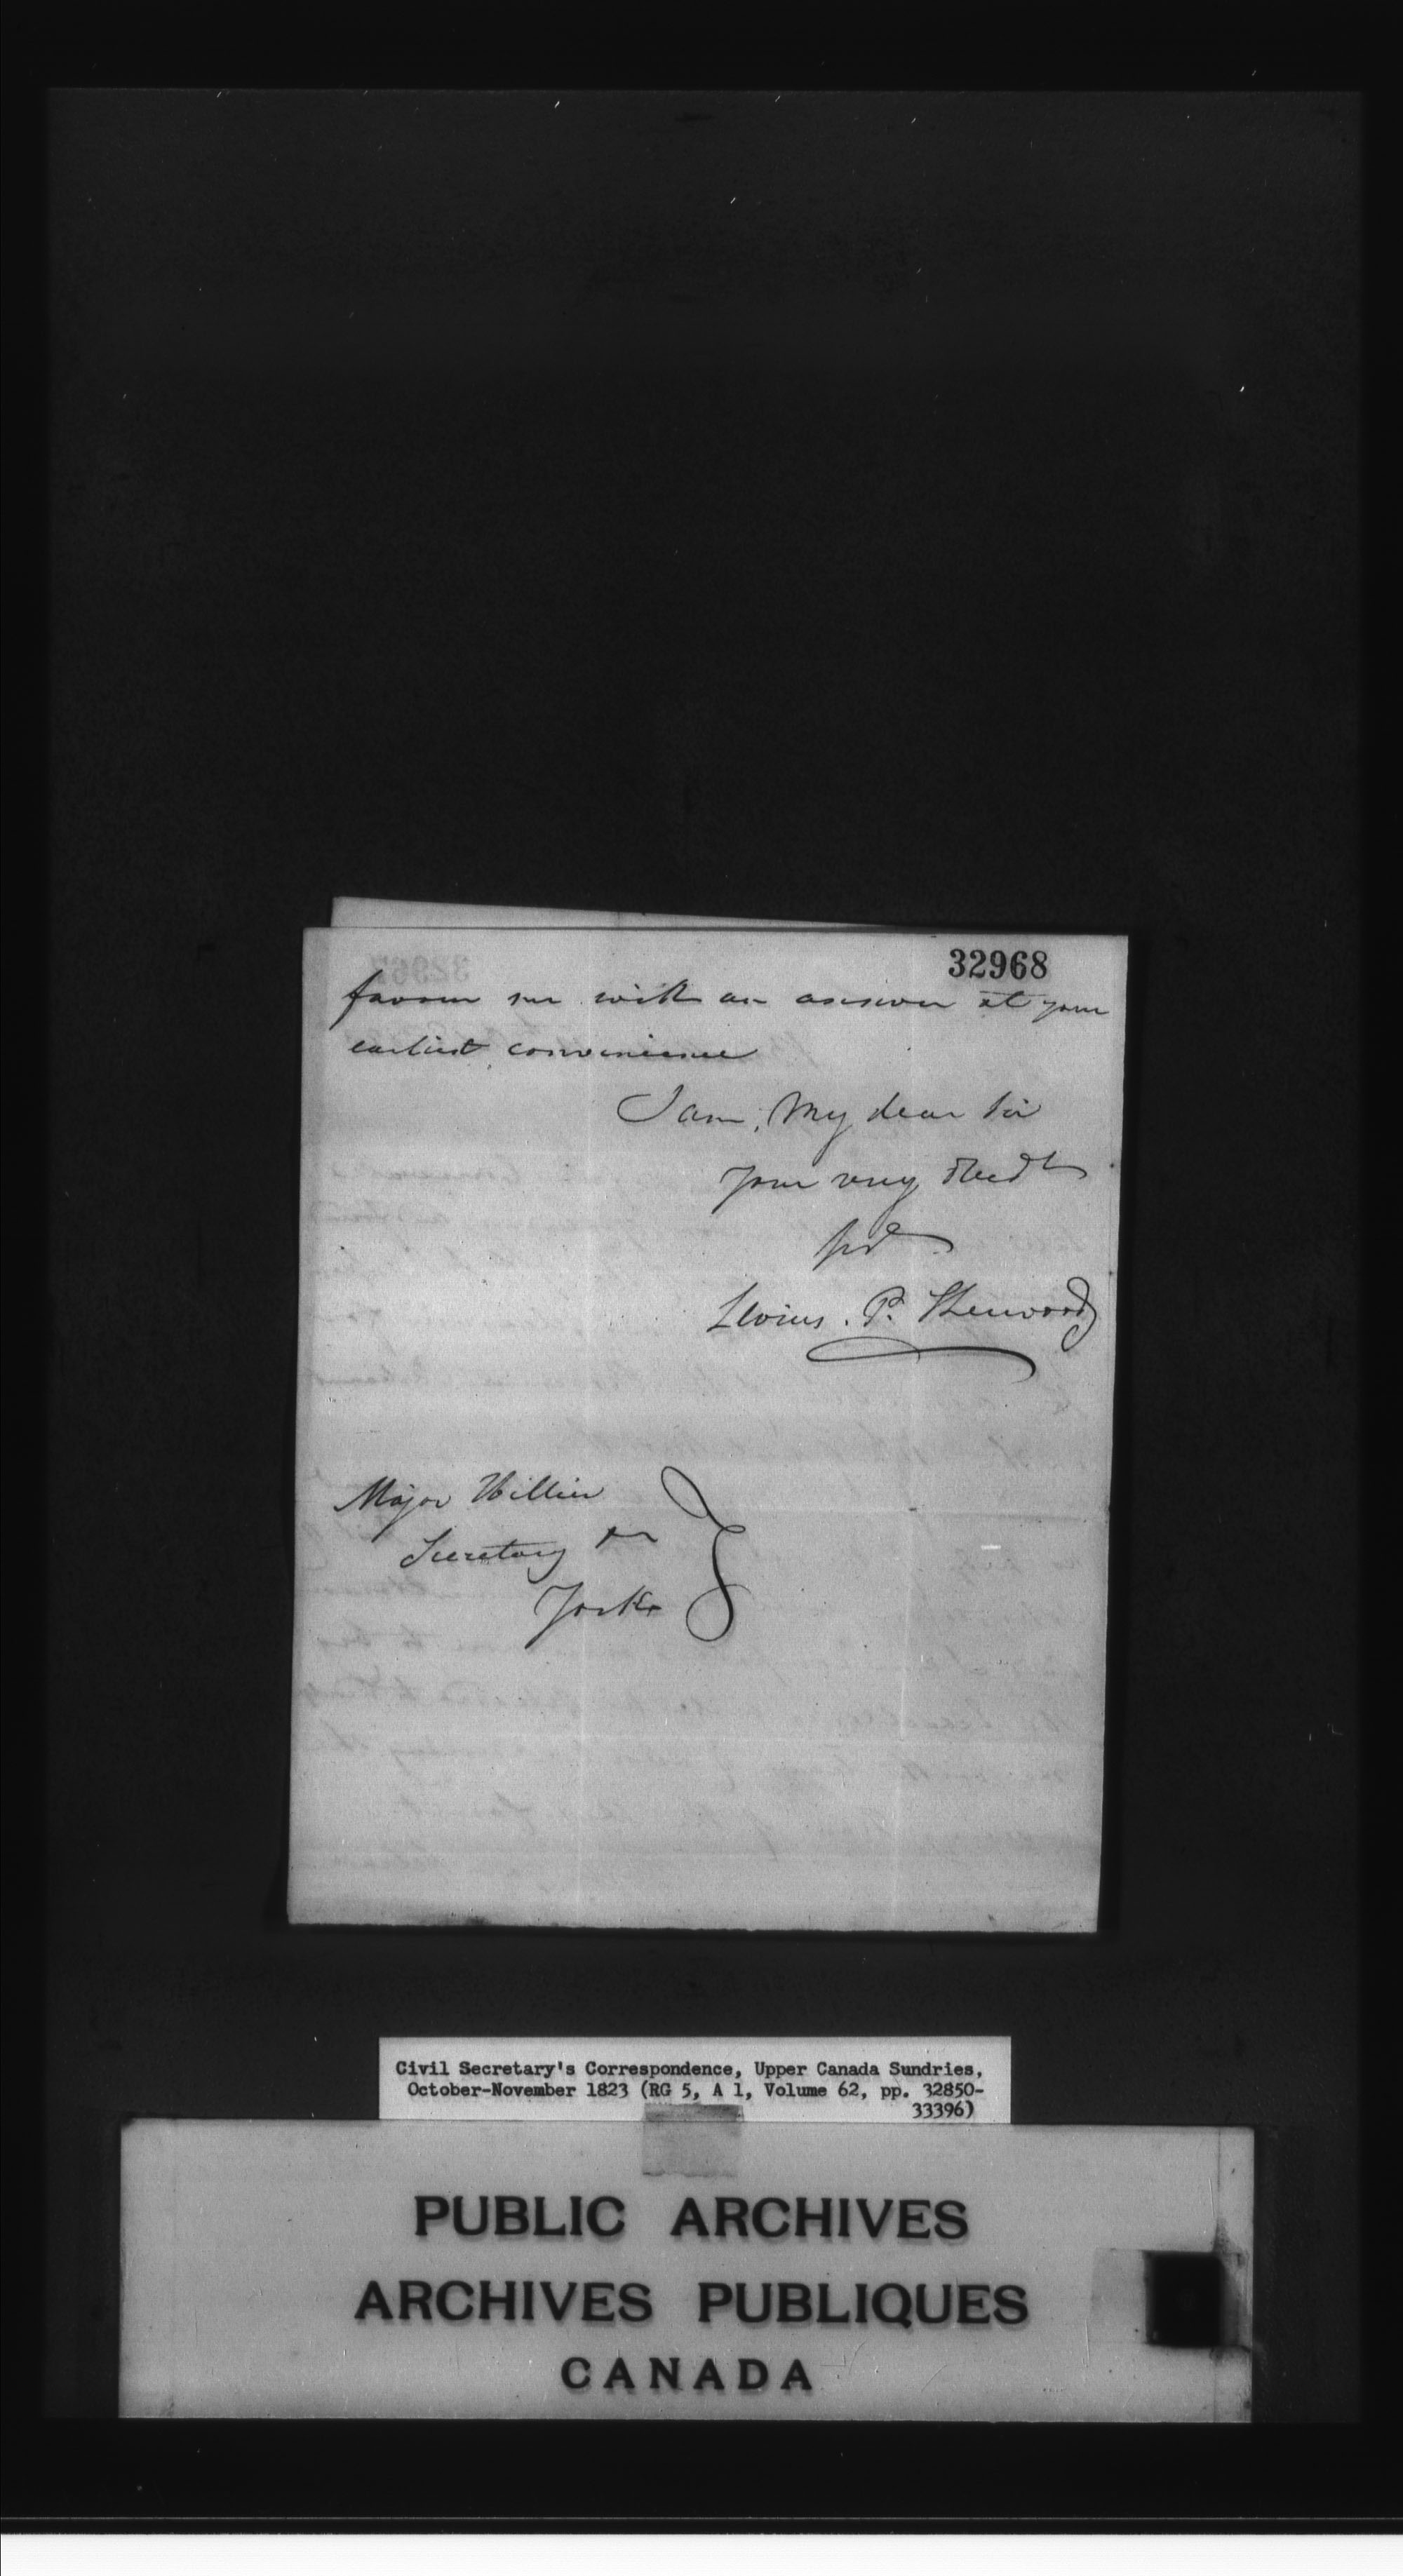 32968
favour me with an answer at your
earliest convenience
I am, My dear Sir
your very Obed^t
Serv^t
Levius. P. Sherwood
Major Hillier
Secretary &c
York
Civil Secretary's Correspondence, Upper Canada Sundries,
October-November 1823 (RG 5, A 1, Volume 62, pp. 32850-
33396)
PUBLIC ARCHIVES
ARCHIVES PUBLIQUES
CANADA